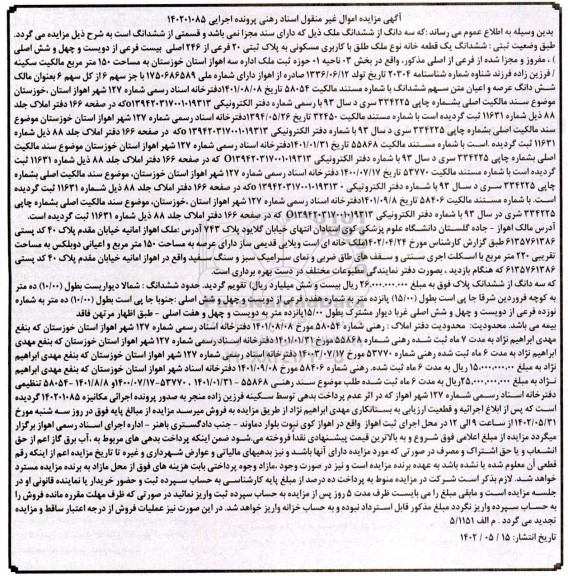 آگهی مزایده اموال غیر منقول اسناد رهنی پرونده اجرایی ۱۴۰۲۰۱۰۸۵
بدین وسیله به اطلاع عموم می رساند :که سه دانگ از ششدانگ ملک ذیل که دارای سند مجزا نمی باشد و قسمتی از ششدانگ است به شرح ذیل مزایده می گردد.
طبق وضعیت ثبتی : ششدانگ یک قطعه خانه نوع ملک طلق با کاربری مسکونی به پلاک ثبتی ۲۰ فرعی از ۲۴۶ اصلی بیست فرعی از دویست و چهل و شش اصلی
) ، مفروز و مجزا شده از فرعی از اصلی مذکور، واقع در بخش ۰۳ ناحیه ۰۱ حوزه ثبت ملک اداره سه اهواز استان خوزستان به مساحت ۱۵۰ متر مربع مالکیت سکینه
/ فرزین زاده فرزند شناوه شماره شناسنامه ۲۰۳۰۴ تاریخ تولد ۱۳۳۶/۰۶/۱۲ صادره از اهواز دارای شماره ملی ۱۷۵۰۶۸۶۵۸۹ با جز سهم ۶ از کل سهم ۶ بعنوان مالک
شش دانگ عرصه و اعیان متن سهم ششدانگ با شماره مستند مالکیت ۵۸۰۵۴ تاریخ ۱۴۰۱/۰۸/۰۸دفترخانه اسناد رسمی شماره ۱۲۷ شهر اهواز استان ،خوزستان
موضوع سند مالکیت اصلی بشماره چاپی ۳۳۴۲۲۵ سری د سال ۹۳ با رسمی شماره دفتر الکترونیکی ۱۳۹۴۲۰۳۱۷۰۰۱۰۱۹۳۱۳که در صفحه ۱۶۶ دفتر املاک جلد
۸۸ ذیل شماره ۱۱۶۳۱ ثبت گردیده است با شماره مستند مالکیت ۳۲۴۵۰ تاریخ ۱۳۹۴/۰۵/۲۶دفترخانه اسناد رسمی شماره ۱۲۷ شهر اهواز استان خوزستان موضوع
سند مالکیت اصلی بشماره چاپی ۳۳۴۲۲۵ سری د سال ۹۳ با شماره دفتر الکترونیکی ۱۳۹۴۲۰۳۱۷۰۰۱۰۱۹۳۱۳ که در صفحه ۱۶۶ دفتر املاک جلد ۸۸ ذیل شماره
۱۱۶۳۱ ثبت گردیده .است با شماره مستند مالکیت ۵۵۸۶۸ تاریخ ۱۴۰۱/۰۱/۳۱دفترخانه اسناد رسمی شماره ۱۲۷ شهر اهواز استان خوزستان، موضوع سند مالکیت
اصلی بشماره چاپی ۳۳۴۲۲۵ سری د سال ۹۳ با شماره دفتر الکترونیکی ۱۳۹۴۲۰۳۱۷۰۰۱۰۱۹۳۱۳ که در صفحه ۱۶۶ دفتر املاک جلد ۸۸ ذیل شماره ۱۱۶۳۱ ثبت
گردیده است با شماره مستند مالکیت ۵۳۷۷۰ تاریخ ۱۴۰۰/۰۷/۱۷ دفترخانه اسناد رسمی شماره ۱۲۷ شهر اهواز استان خوزستان، موضوع سند مالکیت اصلی بشماره
چاپی ۳۳۴۲۲۵ سری د سال ۹۳ با شماره دفتر الکترونیکی ۱۳۹۴۲۰۳۱۷۰۰۱۰۱۹۳۱۳ که در صفحه ۱۶۶ دفتر املاک جلد ۸۸ ذیل شماره ۱۱۶۳۱ ثبت گردیده
است. با شماره مستند مالکیت ۵۸۴۰۶ تاریخ ۱۴۰۱/۰۹/۸ دفترخانه اسناد رسمی شماره ۱۲۷ شهر اهواز استان خوزستان، موضوع سند مالکیت اصلی بشماره چاپی
۳۳۴۲۲۵ سری د سال ۹۳ با شماره دفتر الکترونیکی ۱۳۹۴۲۰۳۱۷۰۰۱۰۱۹۳۱۳ که در صفحه ۱۶۶ دفتر املاک جلد ۸۸ ذیل شماره ۱۱۶۳۱ ثبت گردیده است.
آدرس مالک اهواز - جاده گلستان دانشگاه علوم پزشکی کوی استادان انتهای خیابان گلایود پلاک ۷۴۳ آدرس :ملک اهواز امانیه خیابان مقدم پلاک ۴۰ کد پستی
۶۱۳۵۷۶۱۳۸۶ طبق گزارش کارشناس مورخ ۱۴۰۲/۰۴/۲۴ملک خانه ای است ویلایی قدیمی ساز دارای عرصه به مساحت ۱۵۰ متر مربع و اعیانی دوبلکس به مساحت
تقریبی ۲۲۰ متر مربع با اسکلت اجری سنتی و سقف های طاق ضربی و نمای سرامیک سبز و سنگ سفید واقع در اهواز امانیه خیابان مقدم پلاک ۴۰ کد پستی
۶۱۳۵۷۶۱۳۸۶ که هنگام بازدید ، بصورت دفتر نمایندگی مطبوعات مختلف در دست بهره برداری است.
که سه دانگ از ششدانگ پلاک فوق به مبلغ ۲۶,۰۰۰,۰۰۰,۰۰۰ ریال (بیست و شش میلیارد ریال) تقویم گردید. حدود ششدانگ : شمالا دیواریست بطول (۱۰/۰۰) ده متر
به کوچه فرودین شرقا جا پی است بطول (۱۵/۰۰) پانزده متر به شماره هفده فرعی از دویست و چهل و شش اصلی :جنوبا جا پی است بطول (۱۰/۰۰) ده متر به شماره
نوزده فرعی از دویست و چهل و شش اصلی غربا دیوار مشترک بطول ۱۵/۰۰پانزده متر به دویست و چهل و هفت اصلی - طبق اظهار مرتهن فاقد
بیمه می باشد. محدودیت: محدودیت دفتر املاک : رهنی شماره ۵۸۰۵۴ مورخ ۱۴۰۱/۰۸/۰۸ دفترخانه اسناد رسمی شماره ۱۲۷ شهر اهواز استان خوزستان که بنفع
مهدی ابراهیم نژاد به مدت ۷ ماه ثبت شده رهنی شماره ۵۵۸۶۸مورخ ۱۴۰۱/۰۱/۳۱ دفترخانه اسناد رسمی شماره ۱۲۷ شهر اهواز استان خوزستان که بنفع مهدی
ابراهیم نژاد به مدت ۶ ماه ثبت شده رهنی شماره ۵۳۷۷۰ مورخ ۱۴۰۳/۰۷/۱۷ دفترخانه اسناد رسمی شماره ۱۲۷ شهر اهواز استان خوزستان که بنفع مهدی ابراهیم
نژاد به مبلغ ۱۵,۰۰۰,۰۰۰,۰۰۰ریال به مدت ۶ ماه ثبت شده. رهنی شماره ۵۸۴۰۶ مورخ ۱۴۰۱/۰۹/۰۸ دفترخانه اسناد رسمی شماره ۱۲۷ شهر اهواز استان خوزستان که بنفع مهدی ابراهیم
نژاد به مبلغ ۲۵,۰۰۰,۰۰۰,۰۰۰ریال به مدت ۶ ماه ثبت شده طلب موضوع سند رهنی ۵۵۸۶۸ - ۱۴۰۱/۰۱/۳۱ ،۵۳۷۷۰-۱۴۰۰/۰۷/۱۷و ۱۴۰۱/۸/۸ -۵۸۰۵۴ تنظیمی
دفترخانه اسناد رسمی شماره ۱۲۷ شهر اهواز که در اثر عدم پرداخت بدهی توسط سکینه فرزین زاده منجر به صدور پرونده اجرائی مکانیزه ۱۴۰۲۰۱۰۸۵ گردیده
است که پس از ابلاغ اجرائیه و قطعیت ارزیابی به بستانکاری مهدی ابراهیم نژاد از طریق مزایده به فروش میرسد مزایده از مبالغ پایه فوق در روز سه شنبه مورخ
۱۴۰۲/۰۵/۳۱از ساعت ۹ الی ۱۲ در محل اجرای ثبت اهواز واقع در اهواز کوی نبوت بلوار دماوند - جنب دادگستری باهنر - اداره اجرای اسناد رسمی اهواز برگزار
میگردد مزایده از مبلغ اعلامی فوق شروع و به بالاترین قیمت پیشنهادی نقدا فروخته می‌شود ضمن اینکه پرداخت بدهی های مربوط به ،آب برق گاز اعم از حق
انشعاب و یا حق اشتراک و مصرف در صورتی که مورد مزایده دارای آنها باشد و نیز بدهیهای مالیاتی و عوارض شهرداری و غیره تا تاریخ مزایده اعم از اینکه رقم
قطعی آن معلوم شده یا نشده باشد به عهده برنده مزایده است و نیز در صورت وجود ،مازاد وجوه پرداختی بابت هزینه های فوق از محل مازاد به برنده مزایده مسترد
خواهد شد. لازم بذکر است شرکت در مزایده منوط به پرداخت ده درصد از مبلغ پایه کارشناسی به حساب سپرده ثبت و حضور خریدار یا نماینده قانونی او در
جلسه مزایده است و مابقی مبلغ را می بایست ظرف مدت ۵ روز پس از مزایده به حساب سپرده ثبت واریز نمائید در صورتی که ظرف مهلت مقرره مانده فروش را
به حساب سپرده واریز نگردد مبلغ مذکور قابل استرداد نبوده و به حساب خزانه واریز خواهد شد. در این صورت نیز عملیات فروش از درجه اعتبار ساقط و مزایده
تجدید می گردد . م الف ۵/۱۱۵۱
تاریخ انتشار: ۱۵ / ۰۵ / ۱۴۰۲